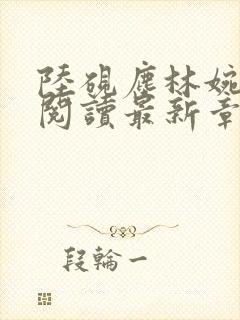 陸硯塵林婉
閱讀最新章
段輪一